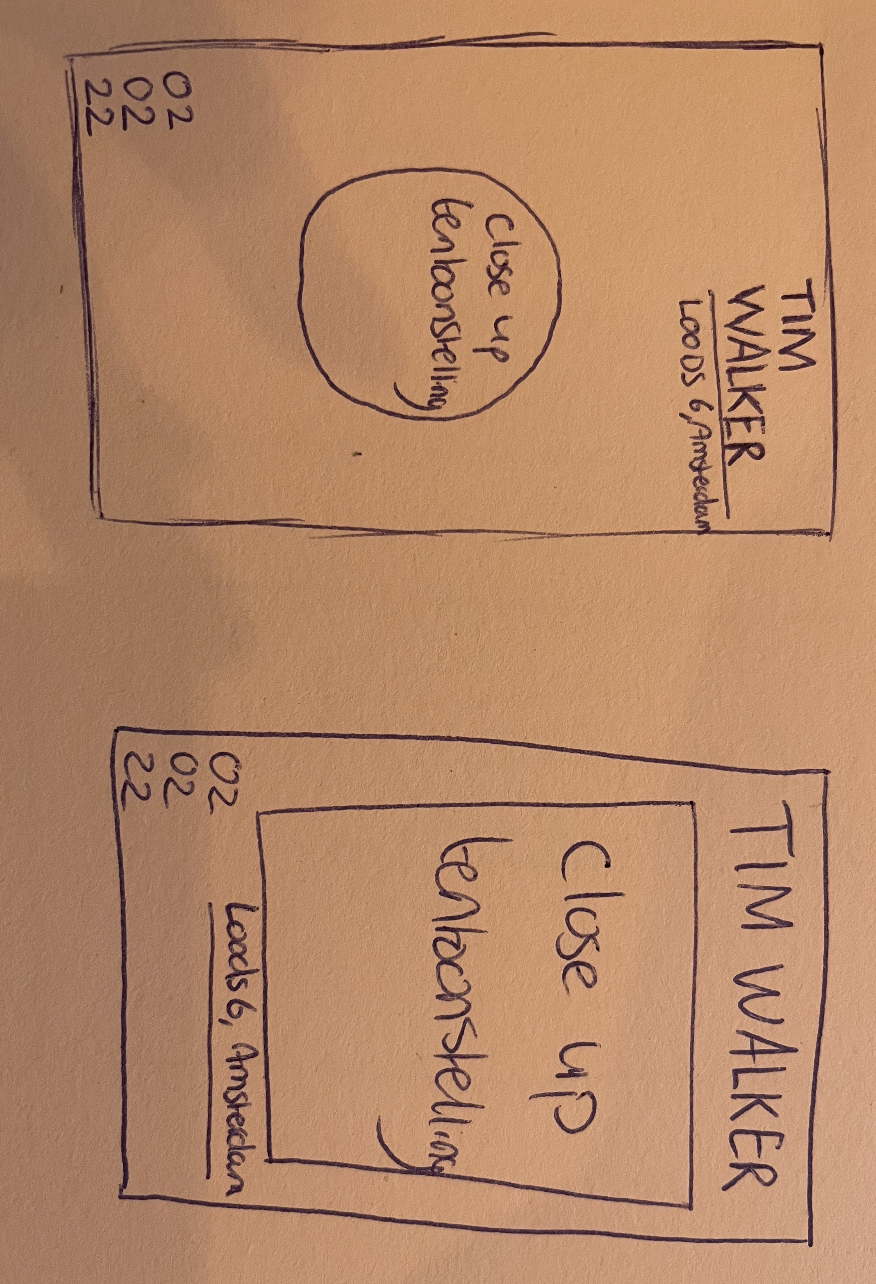 TIM
WALKER
LOODS 6, Amsterdam
Close up
tentoonstelling
02
02
22
TIM WALKER
Close up
tentoonstelling
Loods 6, Amsterdam
02
02
22